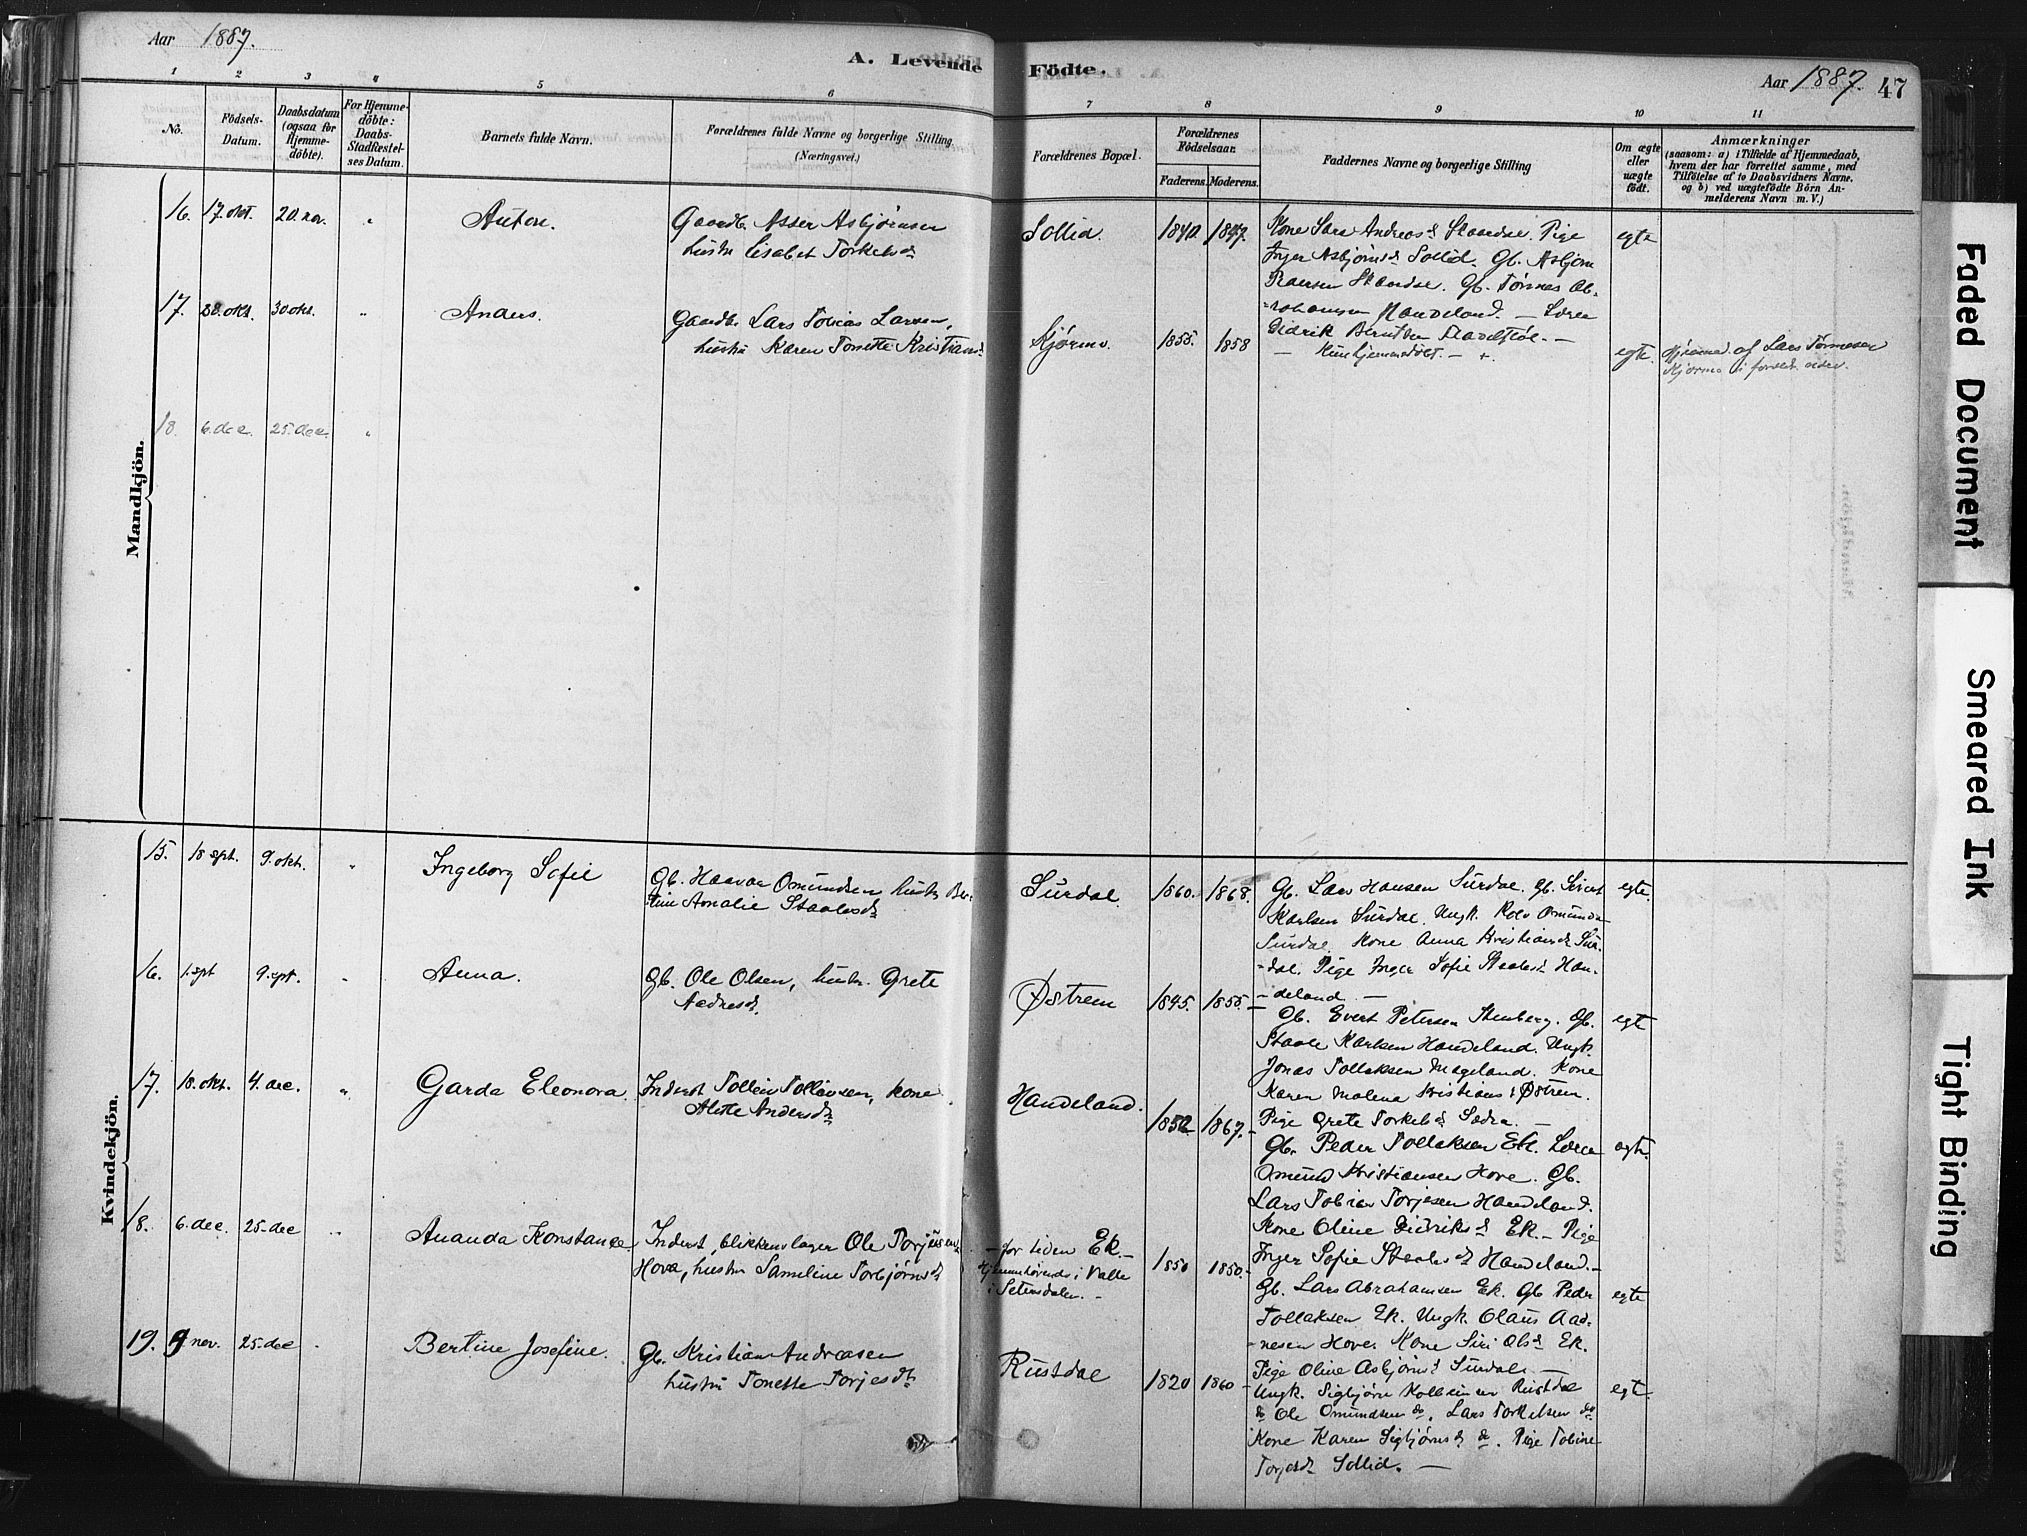 Aar 1887.
A. Levende Födte.
Aar 1887. 47
1 2 3 4 5 6 7 8 9 10 11
No.
Födsels-
Datum.
Daabsdatum
(ogsaa for
Hjemme-
döbte).
For Hjemme-
döbte:
Daabs-
Stadfæstel-
ses Datum.
Barnets fulde Navn.
Forældrenes fulde Navne og borgerlige Stilling
(Næringsvei.)
Forældrenes Bopæl.
Forældrenes
Födselsaar.
Faderens. Moderens.
Faddernes Navne og borgerlige Stilling
Om ægte
eller
uægte
födt.
Anmærkninger
(saasom: a) i Tilfælde af Hjemmedaab,
hvem der har forrettet samme, med
Tilföielse af to Daabsvidners Navne.
og b) ved uægtefödte Börn An-
melderens Navn m. V.)
Mandkjön.
16. 17. okt. 20. nov. " Anton.
Gaardb. Asser Asbjørnsen
hustru Lisabet Torkelsd.
Sollid. 1840 1847.
Kone Sara Andreasd. Skaardae. Pige
Inger Asbjørnsd. Sollid. Gb. Asbjørn
Skaardae. Gb. Tønnes Ab-
-rahamsen Handeland. — Lærer
Didrik Berntsen —
egte
17. 28. okt. 30 okt. " Anders.
Gaardb. Lars Tobias Larsen,
hustru Karen Tonette Kristiansd.
Kjørmo. 1855. 1858
— Kun hjemmedøbt. —
egte.
Hjemmed. af Lars Tønnesen
Kjørmo i
18. 6. dec. 25. dec. "
Kvindekjön.
15. 18 spt. 9. okt. " Ingeborg Sofie
Gb. Haavar Omundsen hustr. Ber-
tine Amalie Staalesd.
Surdal. 1860. 1868.
Gb. Lars Hansen Surdal. Gb. Sivert
Karlsen Surdal. Ungk. Omunds.
Surdal. Kone Anna Kristiansd. Sur-
-dal. Pige Inger Sofie Staalesd. Han-
-deland. —
egte.
16. 1. spt 9. spt. " Anna.
Gb. Ole Olsen, hustr. Grete
Aadnesd.
Østrem 1845. 1855.
Gb. Evert Petersen Stenberg. Gb.
Staale Karlsen Handeland. Ungk.
Jonas Tollaksen Mageland. Kone
Karen Malena Kristiansd. Østrem.
Pige Grete Torkelsd. —
egte
17. 18. okt. 4. dec. " Garda Eleonora.
Inderst Tollein Tolleivsen, kone
Alette Andersd.
Handeland. 1852 1867.
Gb. Peder Tollaksen Ek. Lærer
Omund Kristiansen Hove. Gb.
Lars Tobias Torjesen Handeland.
Kone Oline Didriksd. Ek. — Pige
Inger Sofie Staalesd. Handeland. —
egte.
18. 6. dec. 25. dec " Ananda Konstanse.
Inderst, blikkenslager Ole Torjusen
Hova, hustru Sameline Torbjørnsd.
— for tiden Ek. —
Hjemmehørende i Valle
i Setersdalen. —
1850 1850.
Gb. Lars Abrahamsen Ek. Gb Peder
Tollaksen Ek. Ungk. Olaus Aad-
-nesen Hove. Kone Siri Olsd. Ek.
Pige Oline Asbjørnsd. Surdal. —
egte
19. 9 nov. 25. dec Bertine Josefine.
Gb. Kristian Andreasen
hustru Tonette Torjesdt.
Rustdal 1820 1860
Ungk. Sigbjørn Rustdal
do Ole Omundsen do. Lars Torkelsen do.
Kone Karen Sigbjørnsd. do. Pige Tobine
Torjesd. Sollid. —
egt.
Faded Document
Smeared Ink
Tight Binding